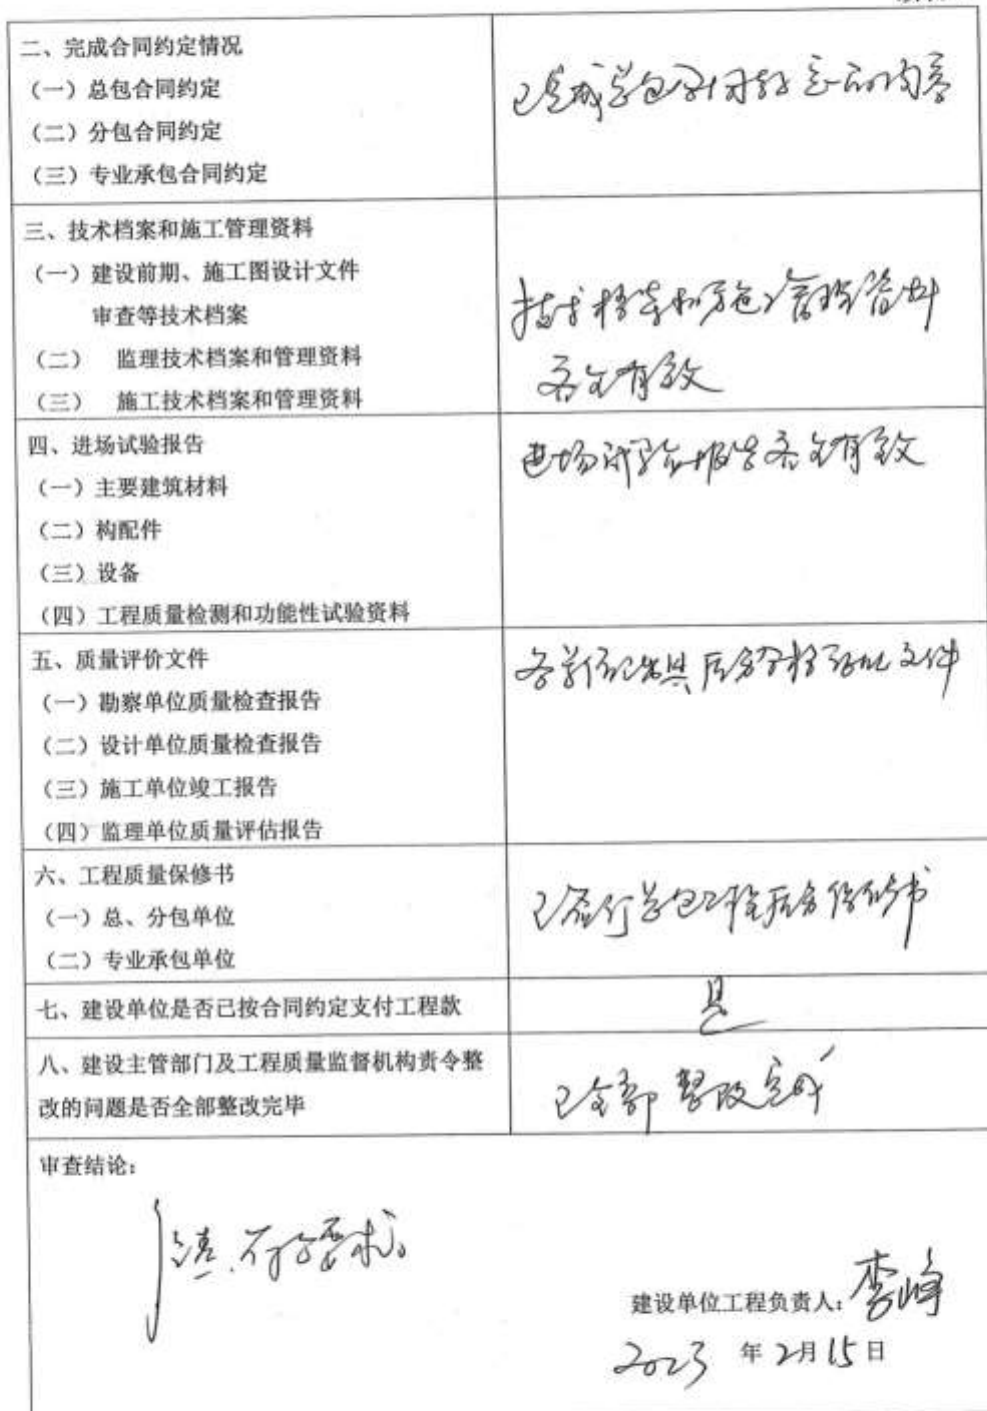 二、完成合同约定情况
(一)总包合同约定
(二)分包合同约定
(三)专业承包合同约定
已完成总包合同约定的内容
三、技术档案和施工管理资料
(一)建设前期、施工图设计文件
审查等技术档案
(二) 监理技术档案和管理资料
(三) 施工技术档案和管理资料
技术档案和施工管理资料
齐全有效
四、进场试验报告
(一)主要建筑材料
(二)构配件
(三)设备
(四)工程质量检测和功能性试验资料
进场试验报告齐全有效
五、质量评价文件
(一)勘察单位质量检查报告
(二)设计单位质量检查报告
(三)施工单位竣工报告
(四)监理单位质量评估报告
各单位已出具质量合格 文件
六、工程质量保修书
(一)总、分包单位
(二)专业承包单位
已签订总包工程质量保修书
七、建设单位是否已按合同约定支付工程款
是
八、建设主管部门及工程质量监督机构责令整
改的问题是否全部整改完毕
已全部整改完成
审查结论:
符合要求。
建设单位工程负责人:李峰
2023 年 2月 15日